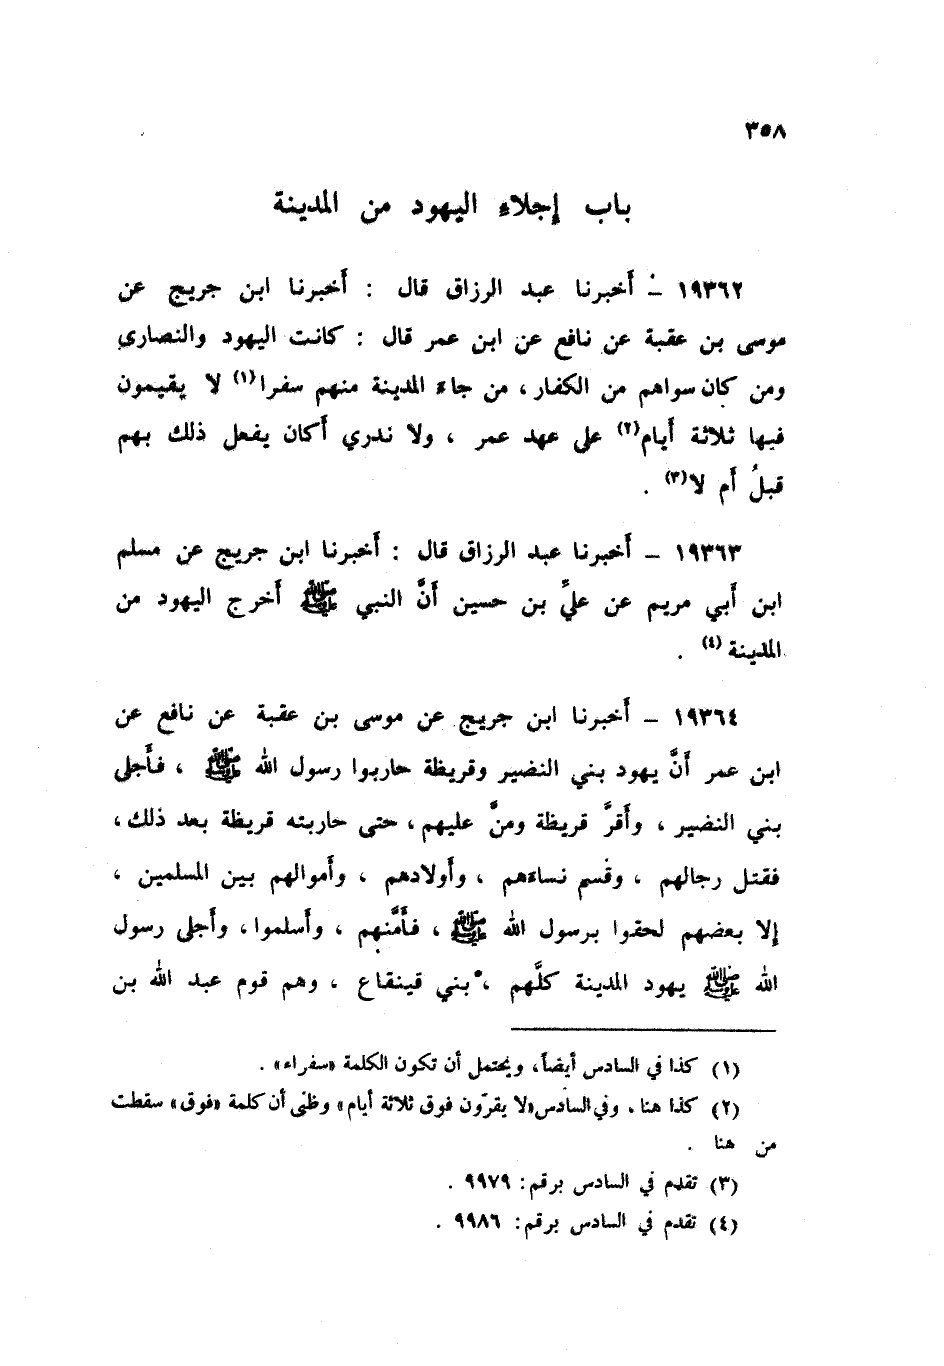 ٣٥٨
باب إجلاءِ اليهود من المدينة
١٩٣٦٢ – أخبرنا عبد الرزاق قال : أخبرنا ابن جريج عن
موسى بن عقبة عن نافع عن ابن عمر قال : كانت اليهود والنصارى
ومن كان سواهم من الكفار ، من جاءَ المدينة منهم سفرا(١) لا يقيمون
فيها ثلاثة أيام(٢) على عهد عمر ، ولا ندري أكان يفعل ذلك بهم
قبلُ أم لا(٣) .
١٩٣٦٣ – أخبرنا عبد الرزاق قال : أخبرنا ابن جريج عن مسلم
ابن أبي مريم عن عليِّ بن حسين أنَّ النبي ﷺ أخرج اليهود من
المدينة(٤) .
١٩٣٦٤ – أخبرنا ابن جريج عن موسى بن عقبة عن نافع عن
ابن عمر أنَّ يهود بني النضير وقريظة حاربوا رسول الله ﷺ ، فأجلى
بني النضير ، وأقرَّ قريظة ومنَّ عليهم ، حتى حاربته قريظة بعد ذلك ،
فقتل رجالهم ، وقسم نساءَهم ، وأولادهم ، وأموالهم بين المسلمين ،
إلا بعضهم لحقوا برسول الله ﷺ ، فأمَّنهم ، وأسلموا ، وأجلى رسول
الله ﷺ يهود المدينة كلَّهم ، بني قينقاع ، وهم قوم عبد الله بن
(١) كذا في السادس أيضاً، ويحتمل أن تكون الكلمة «سفراء» .
(٢) كذا هنا . وفي السادس «لا يقرّون فوق ثلاثة أيام» وظنّى أن كلمة «فوق» سقطت
من هنا .
(٣) تقدم في السادس برقم: ٩٩٧٩ .
(٤) تقدم في السادس برقم: ٩٩٨٦ .